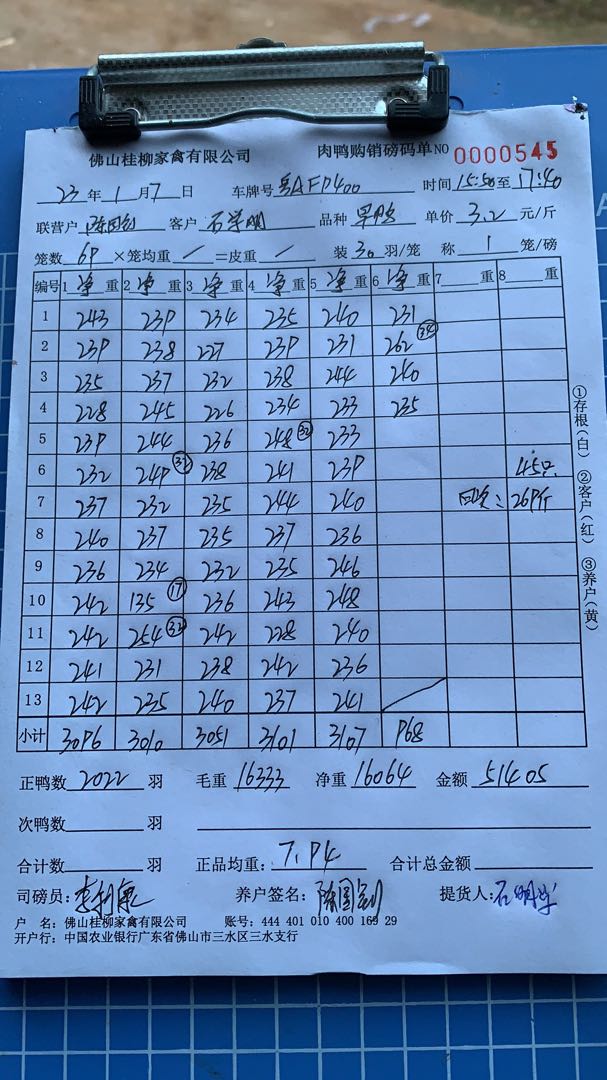 佛山桂柳家禽有限公司 肉鸭购销磅码单 NO 0000545
23 年 1 月 7 日 车牌号 粤AF9400 时间 15:50 至 17:40
联营户 陈国钊 客户 石学明 品种 旱鸭 单价 3.2 元/斤
笼数 69 ×笼均重 / =皮重 / 装 30 羽/笼 称 1 笼/磅
编号 1 净 重 2 净 重 3 净 重 4 净 重 5 净 重 6 净 重 7 重 8 重
1 243 239 234 235 240 231
2 239 238 227 239 231 262 34
3 235 237 232 238 244 240
4 228 245 226 234 233 235
5 239 244 236 248 32 233
6 232 249 32 238 241 239 45只
7 237 232 235 244 240 269斤
8 240 237 235 237 236
9 236 234 232 235 246
10 242 135 17 236 243 248
11 242 254 32 242 228 240
12 241 231 238 242 236
13 242 235 240 237 241
小计 3096 3010 3051 3101 3107 968
①存根(白) ②客户(红) ③养户(黄)
正鸭数 2022 羽 毛重 16333 净重 16064 金额 51405
次鸭数 羽
合计数 羽 正品均重: 7.94 合计总金额
司磅员: 养户签名: 陈国钊 提货人: 石明学
户 名: 佛山桂柳家禽有限公司 账号: 444 401 010 400 169 29
开户行: 中国农业银行广东省佛山市三水区三水支行